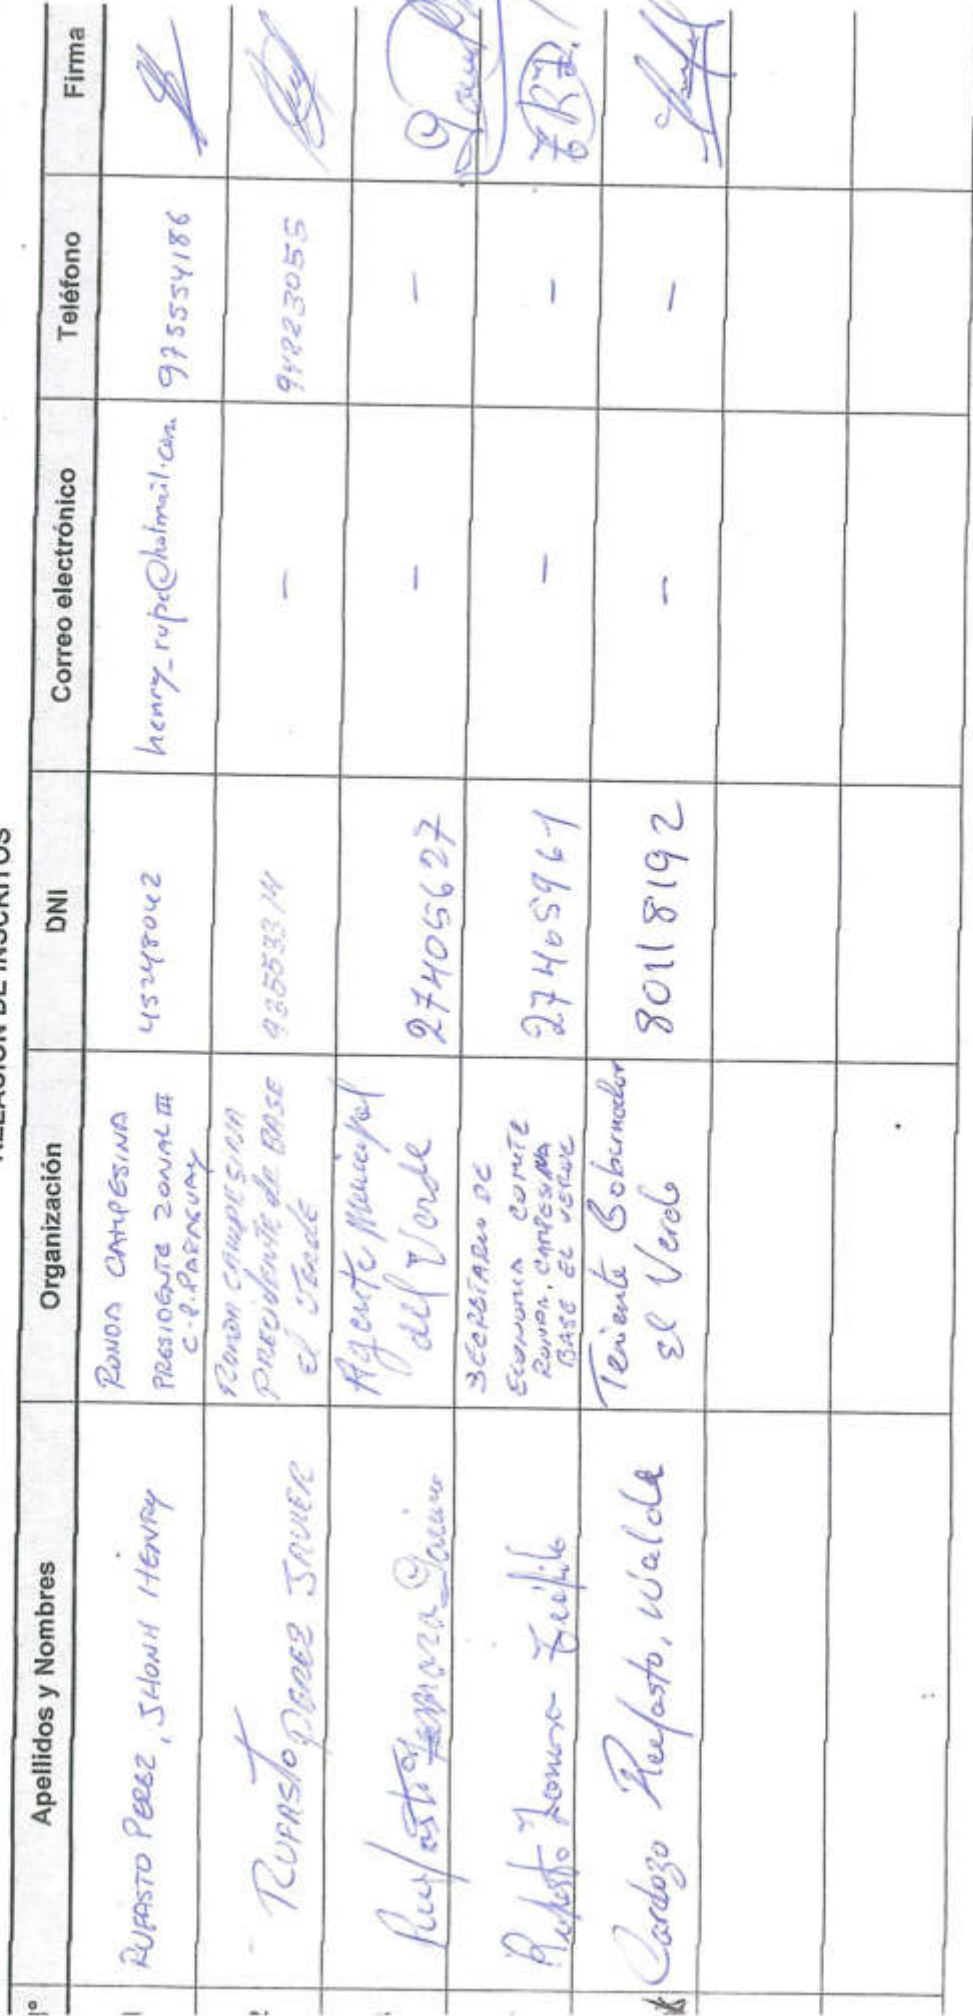 RELACIÓN DE INSCRITOS
N° Apellidos y Nombres Organización DNI Correo electrónico Teléfono Firma
1 RUFASTO PEREZ, JHONH HENRY
RONDA CAMPESINA
PRESIDENTE ZONAL III
C.P. PARAGUAY
45248042
henry_rupe@hotmail.com
975554186
2 RUFASTO PEREZ JAVIER
RONDA CAMPESINA
PRECIDENTE de BASE
El VERDE
94223055
Rufasto
Agente Municipal
del Verde
27405627
- -
Rufasto Teófilo
SECRETARIO DE
ECONOMIA COMITE
RONDA. CAMPESINA
BASE EL VERDE
27405961
- -
Cardozo Rufasto, Walde
Teniente Gobernador
El Verde
80118192
- -